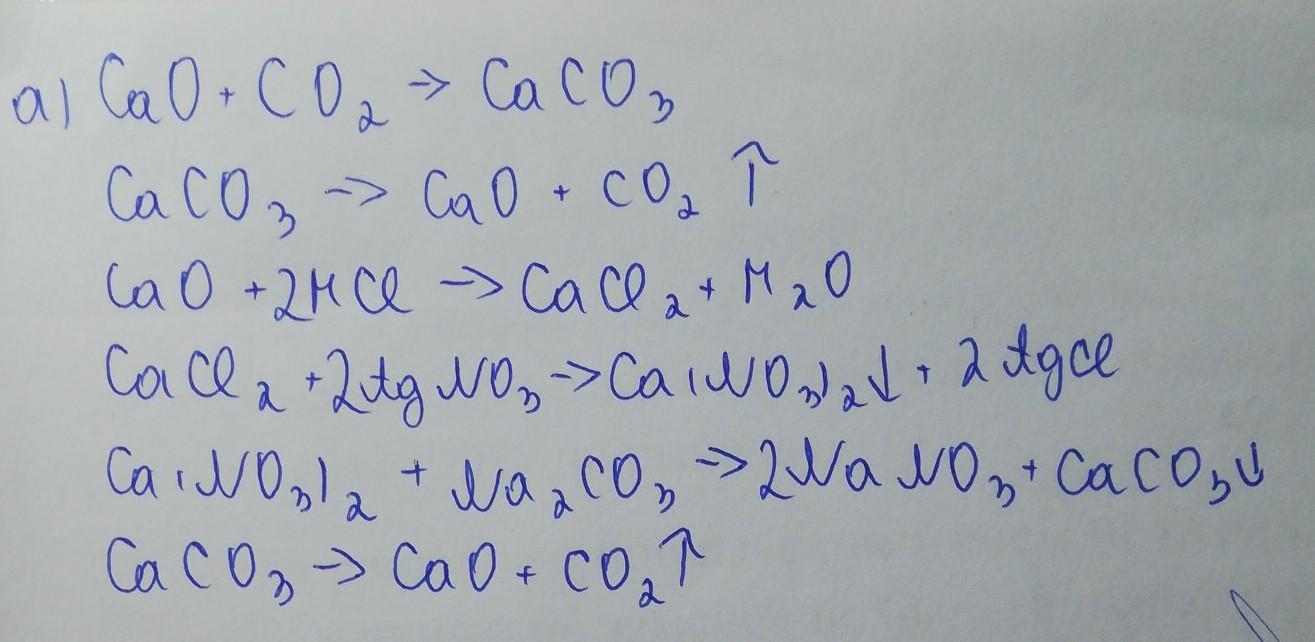 а) CaO + CO₂ → CaCO₃
CaCO₃ → CaO + CO₂ ↑
CaO + 2HCl → CaCl₂ + H₂O
CaCl₂ + 2AgNO₃ → Ca(NO₃)₂↓ + 2AgCl
Ca(NO₃)₂ + Na₂CO₃ → 2NaNO₃ + CaCO₃↓
CaCO₃ → CaO + CO₂↑